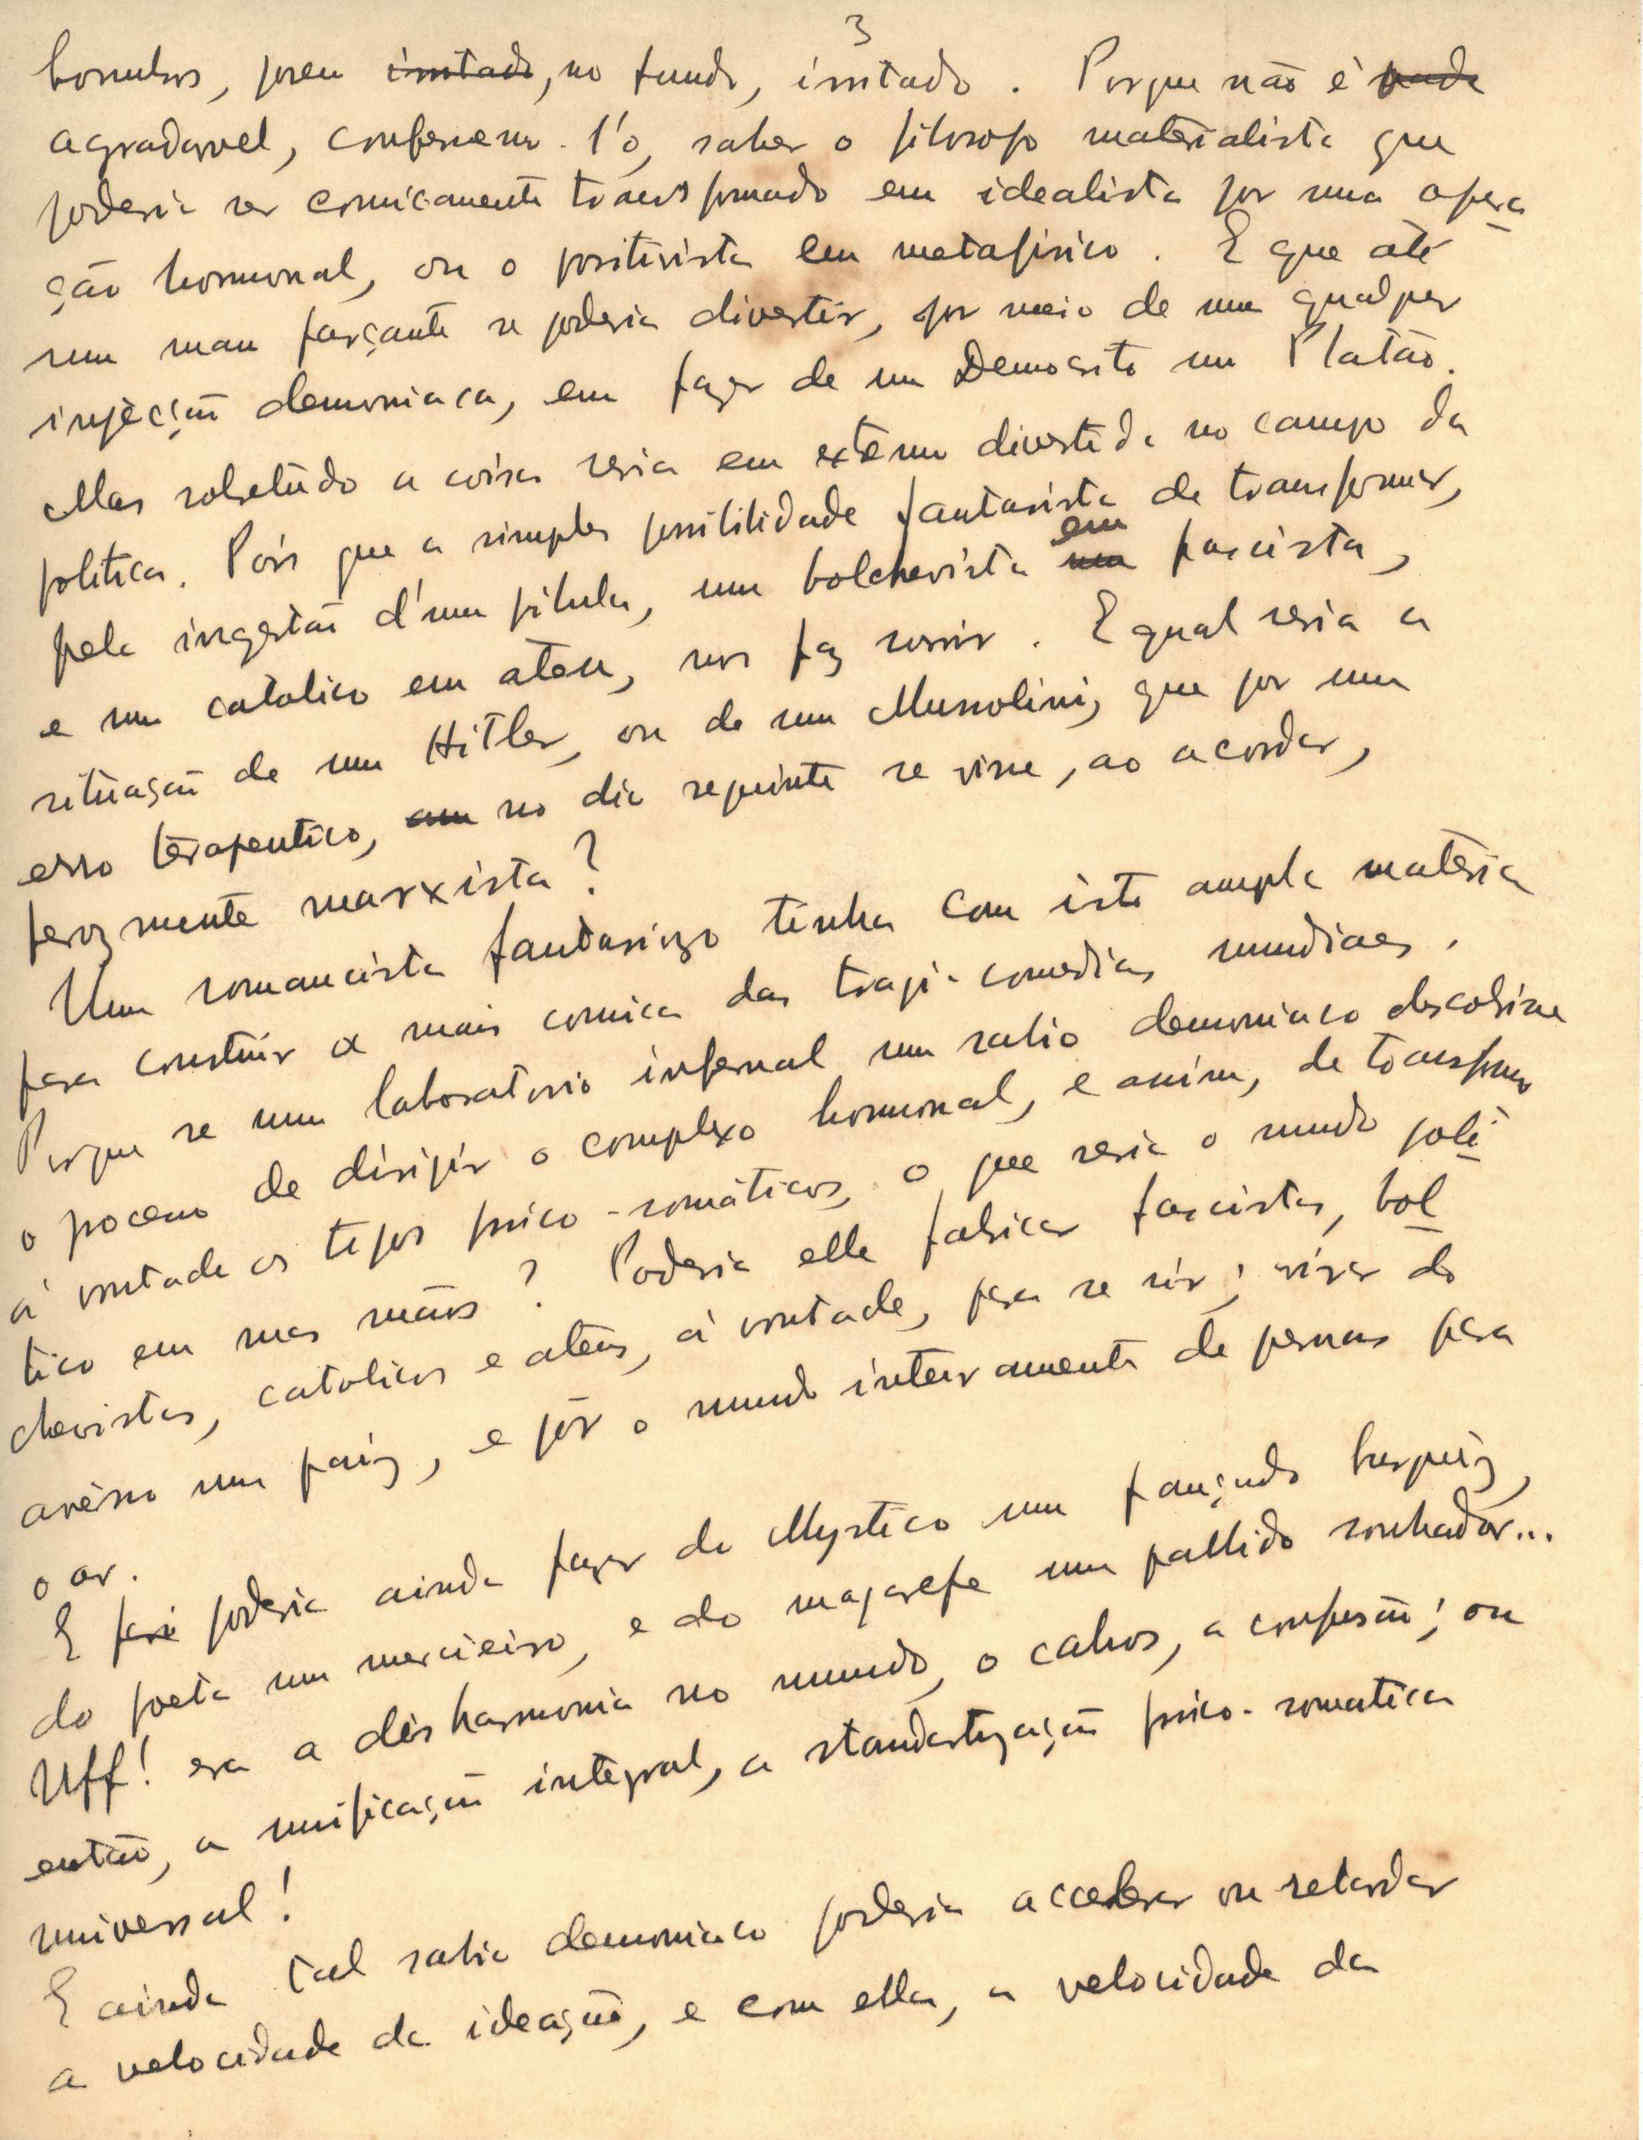 3
bonus, porem imitado, no fundo, irritado. Porque não é nada
agradavel, confessemo-l'o, saber o filosofo materialista que
poderia ser comicamente transformado em idealista por uma opera
ção hormonal, ou o positivista em metafisico. E que até
um mau farçante se poderia divertir, por meio de um qualquer
injecção demoniaca, em fazer de um Democrito um Platão.
Mas sobretudo a coisa seria em extremo divertida no campo da
politica. Pois que a simples possibilidade fantasista de transformar,
pela ingestão d'uma pilula, um bolchevista em fascista,
e um catolico em ateu, nos faz sorrir. E qual seria a
situação de um Hitler, ou de um Mussolini, que por um
erro terapeutico, no dia seguinte se visse, ao acordar,
ferozmente marxista?
Um romancista fantasioso tinha com isto ampla materia
para construir a mais comica das tragi-comedias mundiaes.
Porque se num laboratorio infernal um sabio demoniaco descobrisse
o processo de dirigir o complexo hormonal, e assim, de transformar
á vontade os tipos psico-somáticos, o que seria o mundo poli
tico em suas mãos? Poderia elle fabricar fascistas, bol
chevistas, catolicos e ateus, á vontade, para se rir; virar do
avêsso um paiz, e pôr o mundo inteiramente de pernas para
o ar.
E poderia ainda fazer do Mystico um pançudo burguêz,
do poeta um merceeiro, e do magarefe um pallido sonhador...
Uff! era a desharmonia no mundo, o cahos, a confusão; ou
então, a unificação integral, a standartização psico-somatica
universal!
E ainda tal sabio demoniaco poderia accelerar ou retardar
a velocidade da ideação, e com ella, a velocidade da